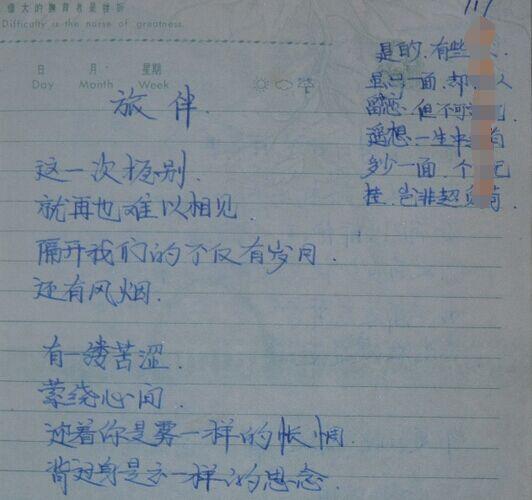 偉大的撫育者是挫折
Difficulty is the nurse of greatness.
日 月 星期
Day Month Week
旅伴
这一次握别.
就再也难以相见.
隔开我们的不仅有岁月.
还有风烟.
有一缕苦涩.
萦绕心间.
迎着你是雾一样的怅惘.
背过身是云一样的思念.
是的.有些
虽只一面.却 人
留恋.但不可
遥想一生中
多少一面.个 记
挂.岂非超负荷